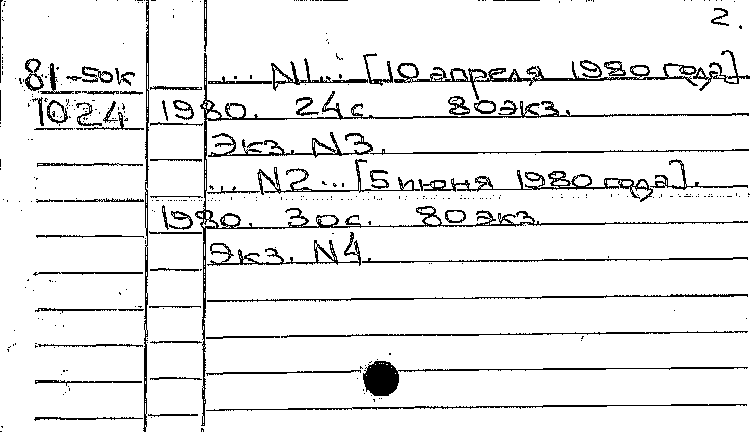 2.
81-50к ... N1... [10 апреля 1980 года]
1024 1980. 24с. 80экз.
Экз. N3.
... N2... [5 июня 1980 года].
1980. 30с. 80экз.
Экз. N4.